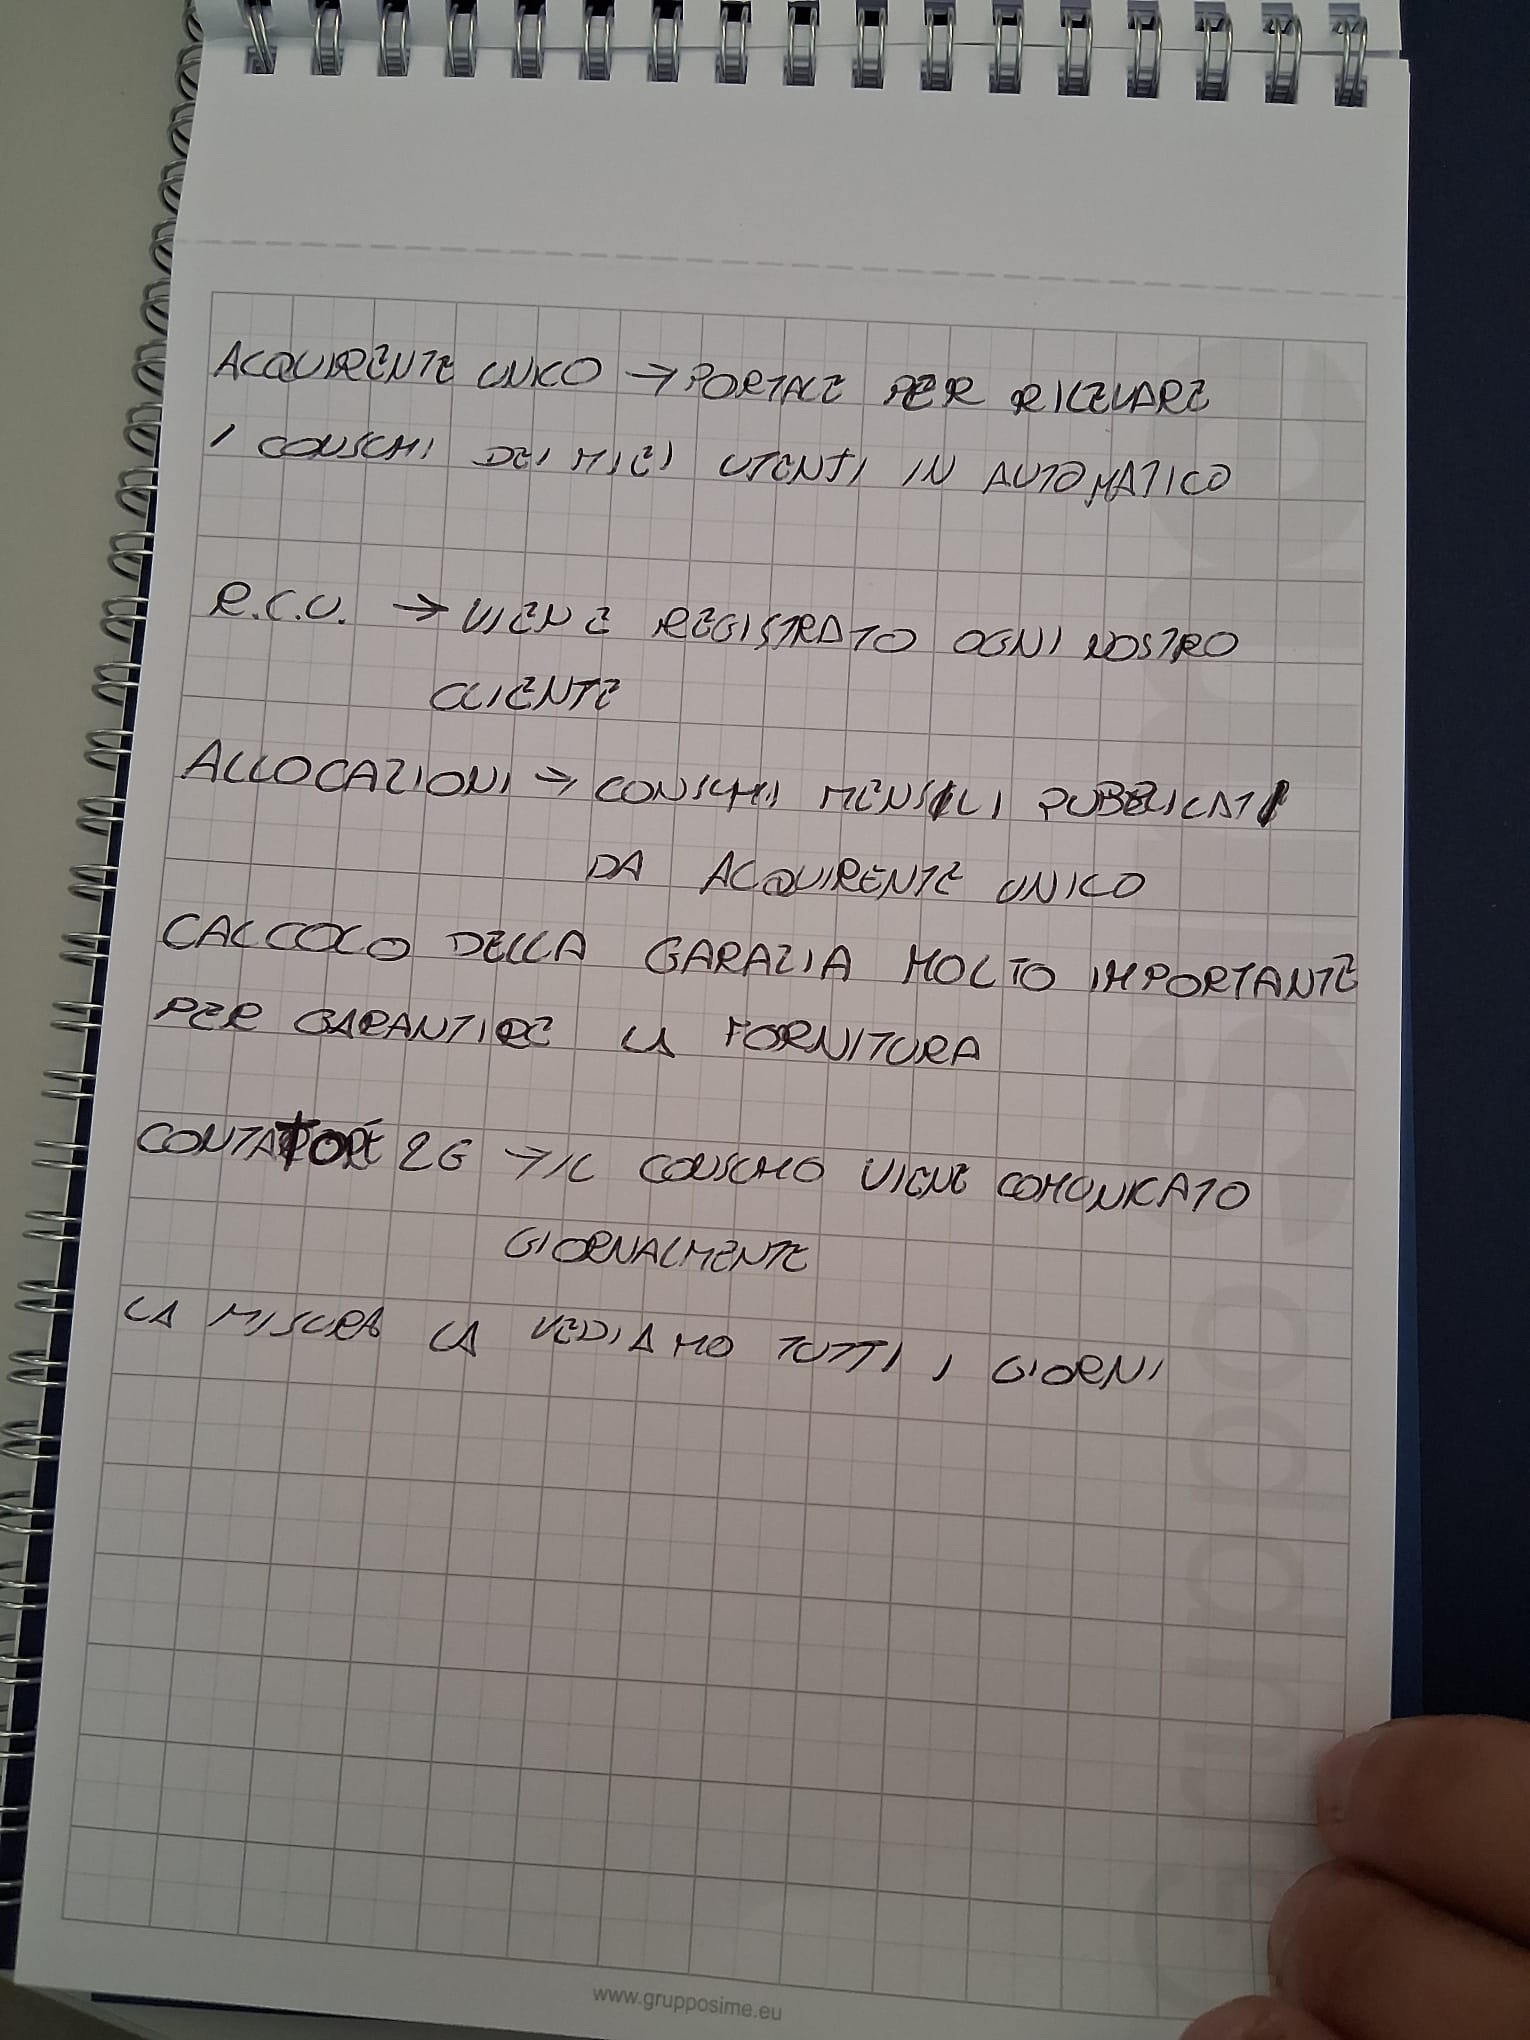 ACQUIRENTE UNICO → PORTALE PER RICEVARE
I CONSUMI DEI MIEI UTENTI IN AUTOMATICO
R.C.U. → VIENE REGISTRATO OGNI NOSTRO
CLIENTE
ALLOCAZIONI → CONSUMI MENSILI PUBBLICATI
DA ACQUIRENTE UNICO
CALCOLO DELLA GARAZIA MOLTO IMPORTANTE
PER GARANTIRE LA FORNITURA
CONTATORE 2G → IL CONSUMO VIENE COMUNICATO
GIORNALMENTE
LA MISURA LA VEDIAMO TUTTI I GIORNI
GruppoSime
www.grupposime.eu